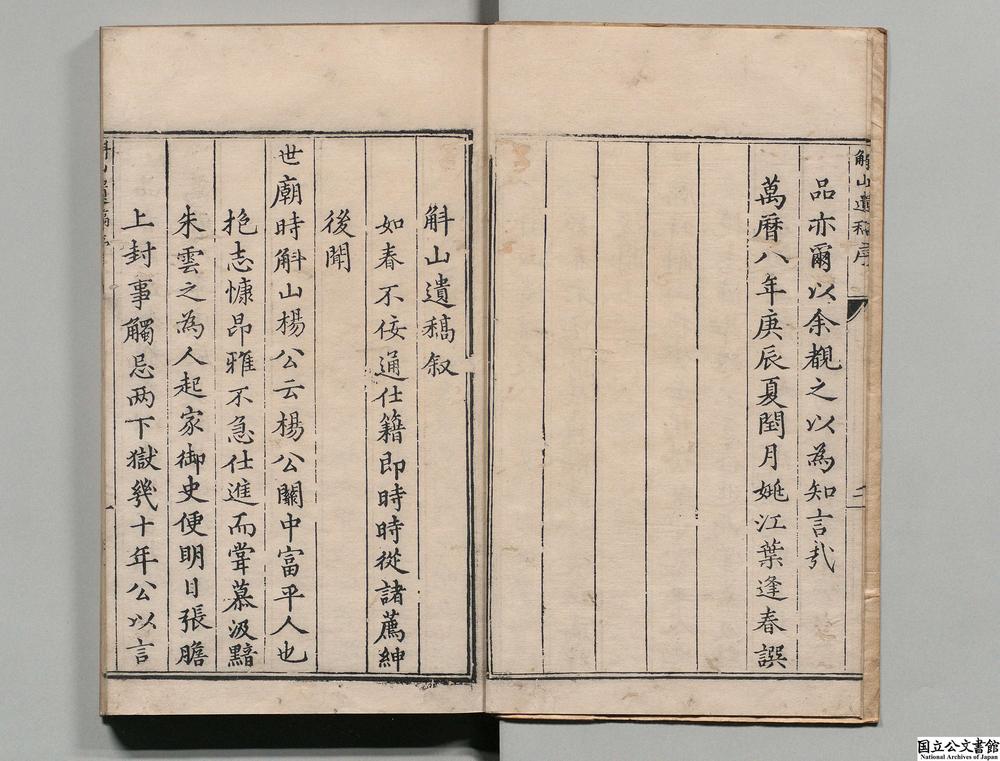 觧山遺稿序
二
品亦爾以余觀之以為知言㦲
萬曆八年庚辰夏閏月姚江葉逢春譔
斛山遺稿叙
如春不佞通仕籍即時時從諸薦紳
後聞
世廟時斛山楊公云楊公關中富平人也
抱志慷昻雅不急仕進而甞慕汲黯
朱雲之為人起家御史便明目張膽
上封事觸忌两下獄幾十年公以言
一
国立公文書館
National Archives of Japan